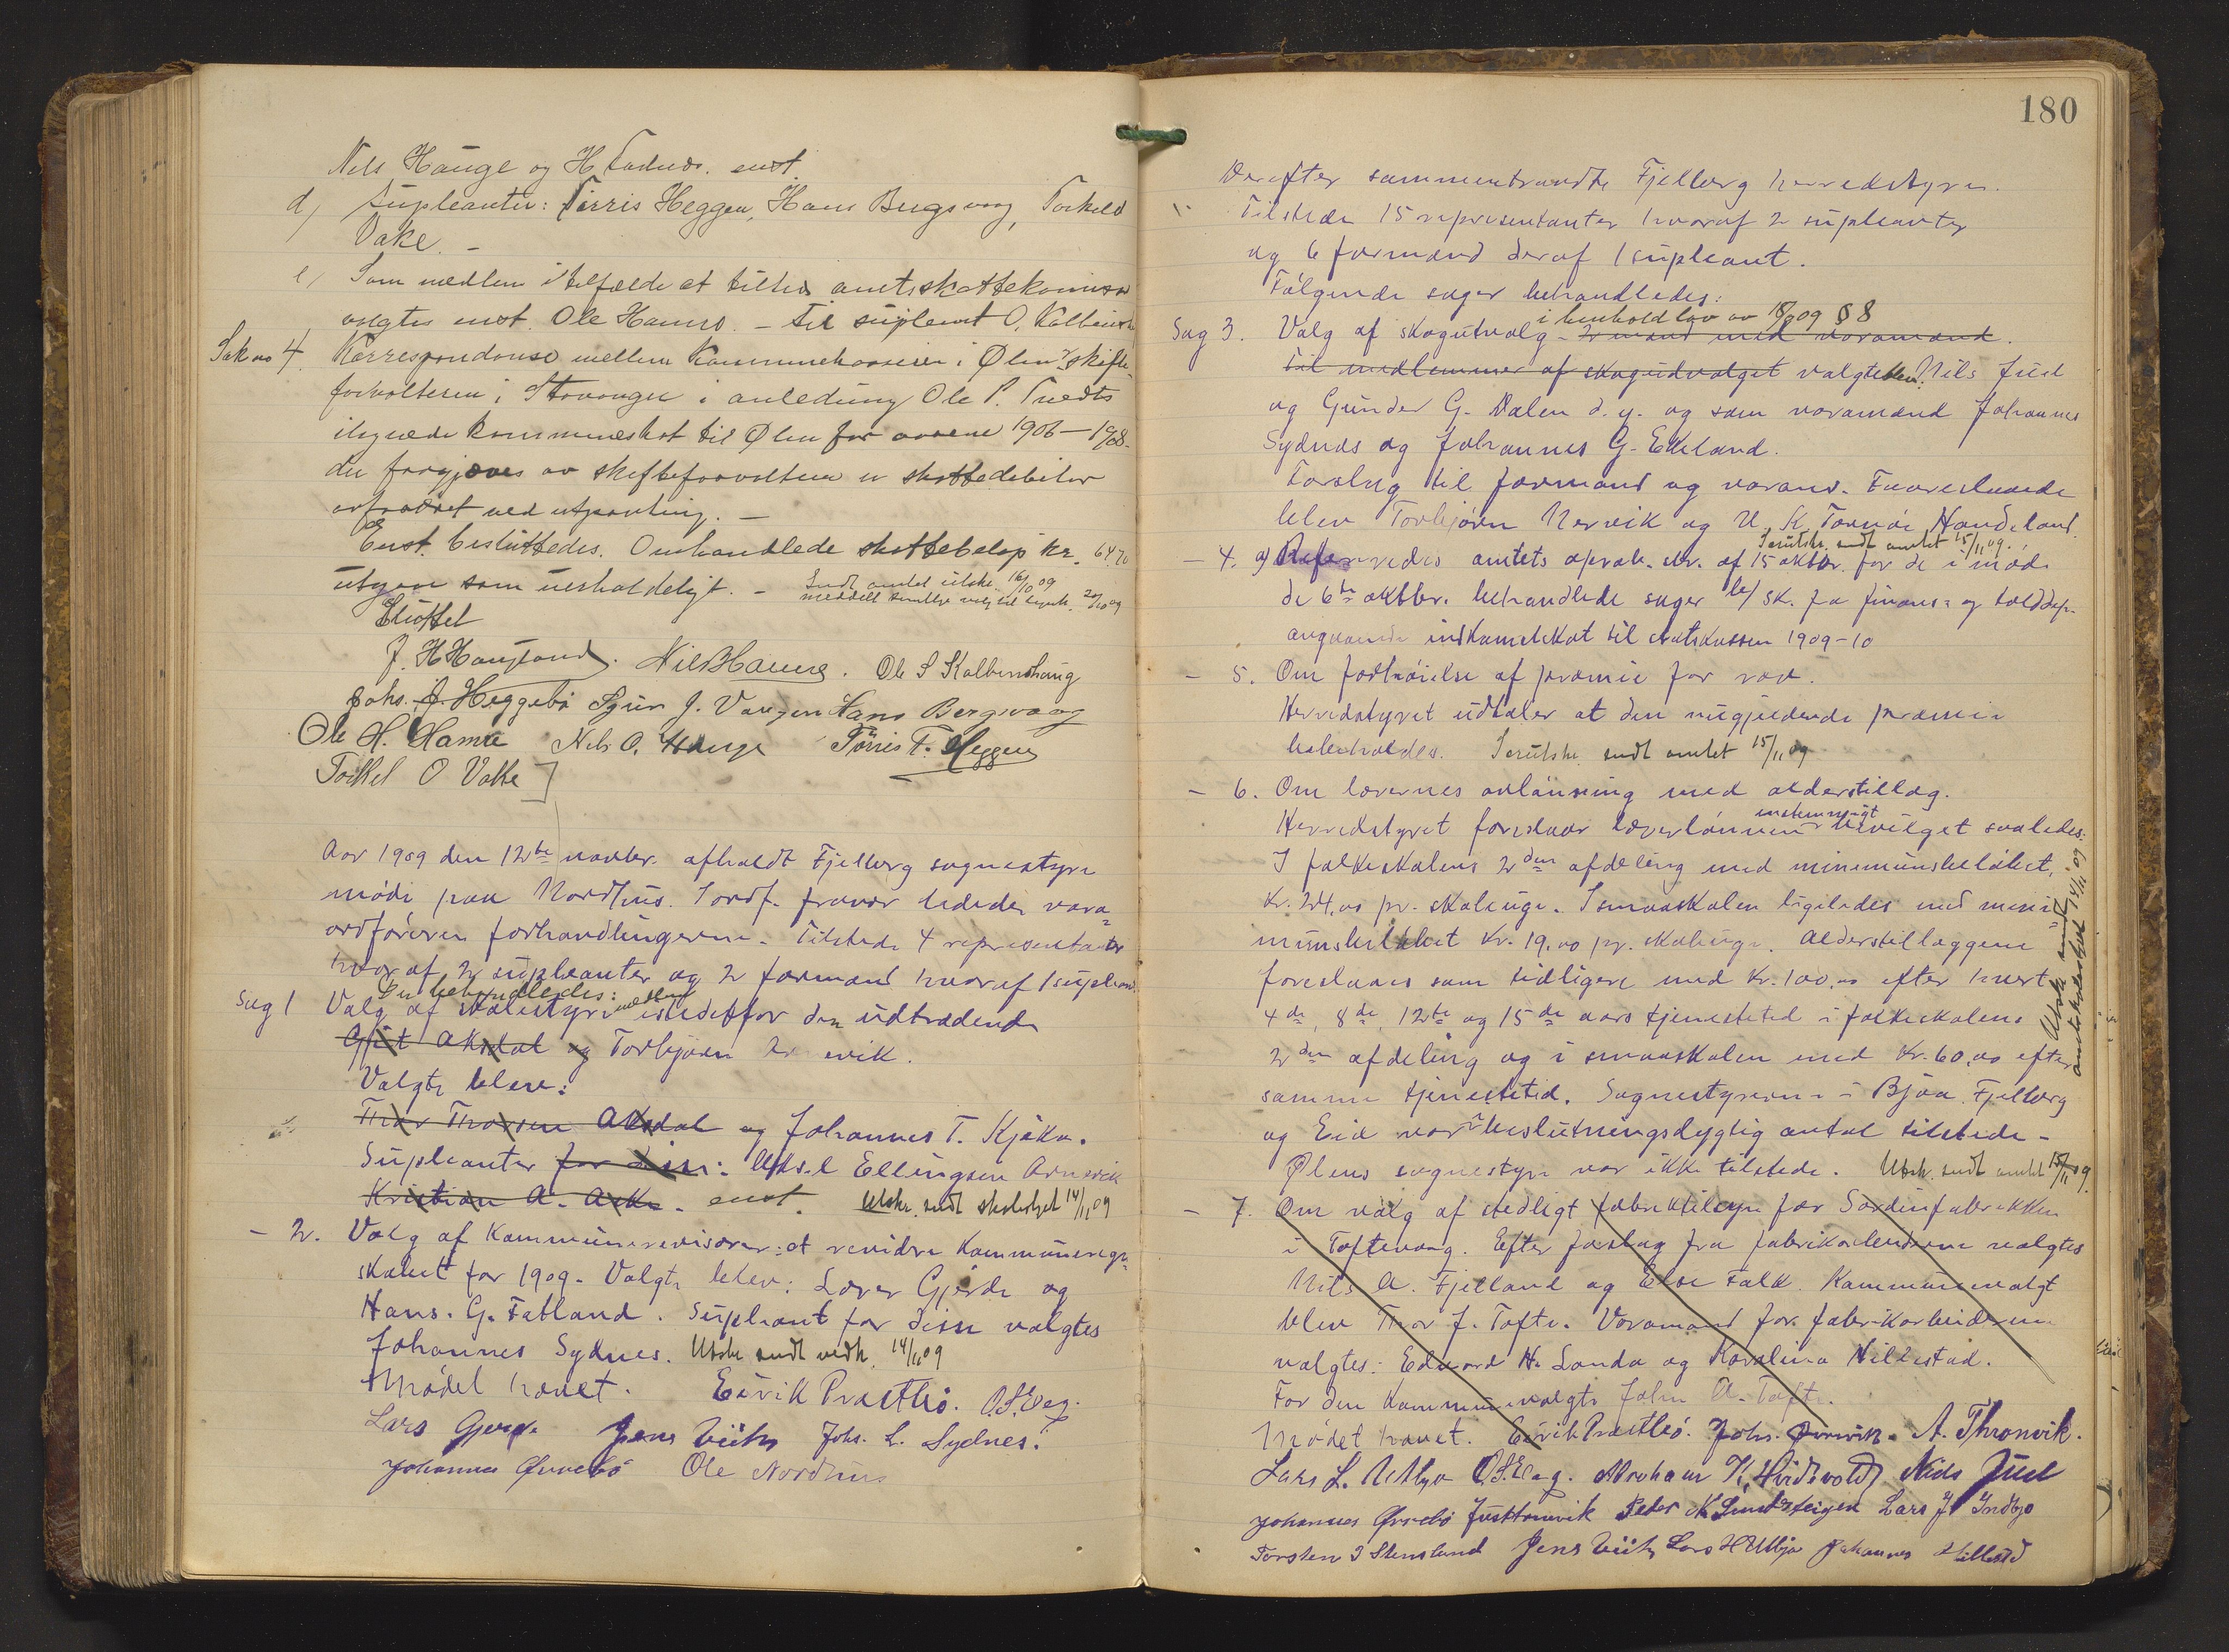 Nils Hauge og H. enst.
d) Supleanter: Tørris Heggen, Hans Bergsvaag, Torkel
Vake. –
e) Som medlem i tilfælde at tiltræ amtsskattekomis
valgtes enst. Ole Hamre. – til supleant O. Kalbeins
Sak no 4. Korrespondanse mellem kommunekasserer i Ølen & skifte-
forvalteren i Stavanger i anledning Ole P. Tvedts
ilignede kommuneskat til Ølen for aarene 1906–1908.
der forgjæves av skifteforvalteren er skattedebitor
avfordret ved utpanting. –
Enst. besluttedes. Omhandlede skattebeløp kr. 64,70
utgaar som uerholdeligt. – Sendt amtet utskr. 16/10 09
meddelt 20/10 09
Sluttet
J. H. Haugland. Nils Hauge. Ole S Kalbeinshaug
Johs. J. Heggebø Sjur J. Vaagen Hans Bergsvaag
Ole H. Hamre Nils O. Hauge Tørris T. Heggen
Torkel O Vake
Aar 1909 den 12te novbr. afholdt Fjelberg sognestyre
møde paa Nordhus. I ordf. fravær ledede vara-
ordføreren forhandlingerne. Tilstede 4 representanter
hvor af 2 supleanter og 2 formænd hvoraf 1 supleant
Der behandledes:
Sag 1 Valg af skolestyre medlem istedetfor den udtrædende
Gjert Aksdal og Torbjørn Nervik.
Valgte blev:
Thor Thorsen Aksdal og Johannes T. Kjøka.
Supleanter for disse: Aksel Ellingsen Arnevik
Kristian A. Aske. enst. Utskr. sendt skolestyret 14/11 09
– 2. Valg af Kommunerevisorer: at revidere Kommuneregn-
skabet for 1909. Valgte blev: Lærer Gjerde og
Hans. G. Fatland. Supleant for disse valgtes
Johannes Sydnes. Utskr sendt vedk. 14/11 09
Mødet hævet. Eirik Prestbø. O.S. Eeg.
Lars Gjerde Jens Vik Johs. L. Sydnes.
Johannes Ørnebø Ole Nordhus
180
Derefter sammentraadte Fjelberg herredstyre.
Tilstede 15 representanter hvoraf 2 supleanter
og 6 formænd deraf 1 supleant.
Følgende sager behandledes:
i henhold lov av 18/9 09 § 8
Sag 3. Valg af skogutvalg – 2 mænd med varamænd.
Til medlemmer af skogudvalget valgtes blev: Nils Juel
og Gunder G. Dalen d. y. og som varamænd Johannes
Sydnes og Johannes G. Ekeland.
Forslag til formand og varam. Foreslaaede
blev Torbjørn Nervik og N. K. Tornøe Handeland.
Særutskr. sendt amtet 15/11 09.
– 4. a) Refereredes amtets skr. af 15 oktbr. for de i møde
de 6te oktbr. behandlede sager b/ sk. fra finans- og tolddep.
angaaende indkomstskat til statskassen 1909–10
– 5. Om forhøielse af præmie for ræv.
Herredstyret udtaler at den nugjeldende præmie
bibeholdes. Særutskr. sendt amtet 15/11 09
– 6. Om lærernes avlønning med alderstillæg.
enstemmigt
Herredstyret foreslaar lærerlønnen bevilget saaledes:
I folkeskolens 2den afdeling med minimumsbeløbet,
Kr. 24,00 pr. skoleuge. I smaaskolen ligeledes med mini-
mumsbeløbet Kr. 19,00 pr. skoleuge. Alderstillæggene
foreslaaes som tidligere med Kr. 100,00 efter hvert
4de, 8de, 12te og 15de aars tjenestetid i folkeskolens
2den afdeling og i smaaskolen med Kr. 60,00 efter
samme tjenestetid. Sognestyrerne i Bjoa, Fjelberg
og Eid var i beslutningsdygtig antal tilstede –
Ølens sognestyre var ikke tilstede. Utskr. sendt amtet 15/11 09.
Utskr. sendt amtskolestyret 14/11 09
– 7. Om valg af stedligt fabriktilsyn for Sardinfabrikken
i Toftevaag. Efter forslag fra fabrikarbeiderne valgtes
Nils A. Fjelland og Else Falk. Kommunevalgt
blev Thor J. Tofte. Varamænd for fabrikarbeiderne
valgtes: Edvard H. Landa og Karolina Hillestad.
For den kommunevalgte John A. Tofte.
Mødet hævet. Eirik Prestbø. Johs. Arnevik. A. Thronvik.
Lars L. Utbjo O.S. Eeg. Abraham K. Hvidevold Nils Juel
Johannes Ørnebø Peder M Lundsteigen Lars J. Indbjo
Torsten I Stensland Jens Vik Lars H Utbjo Johannes Hillestd